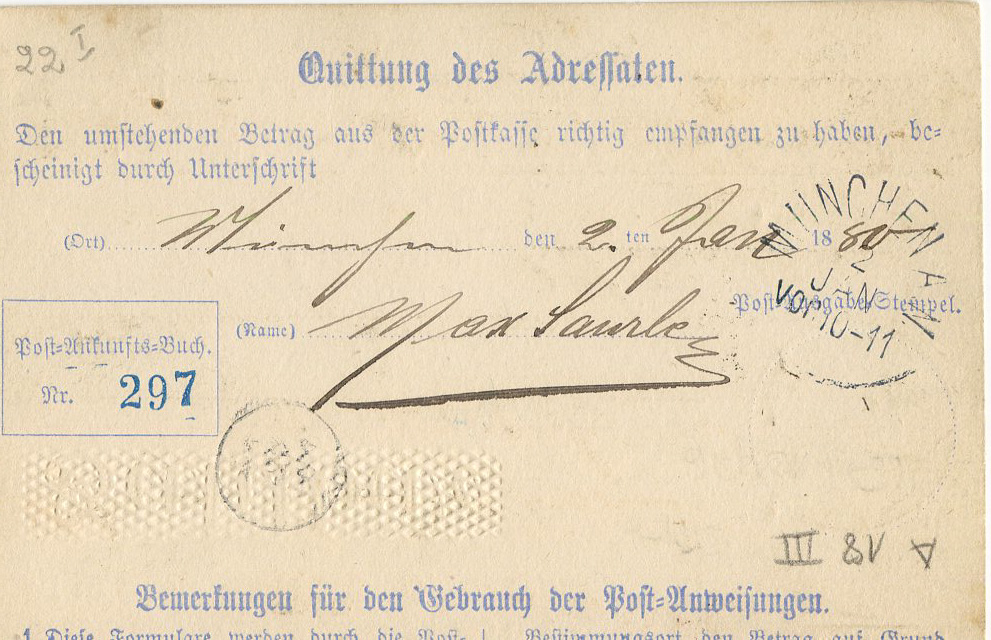 22 I
Quittung des Adressaten.
Den umstehenden Betrag aus der Postkasse richtig empfangen zu haben, be-
scheinigt durch Unterschrift
(Ort) München den 2. ten Jan 18 80
MÜNCHEN
2
JAN
VOR 10-11
Post-Ausgabe-Stempel.
(Name) Max
Post-Ankunfts-Buch.
Nr. 297
III
Bemerkungen für den Gebrauch der Post-Anweisungen.
1. Diese Formulare werden durch die Post-
Bestimmungsort den Betrag auf Grund